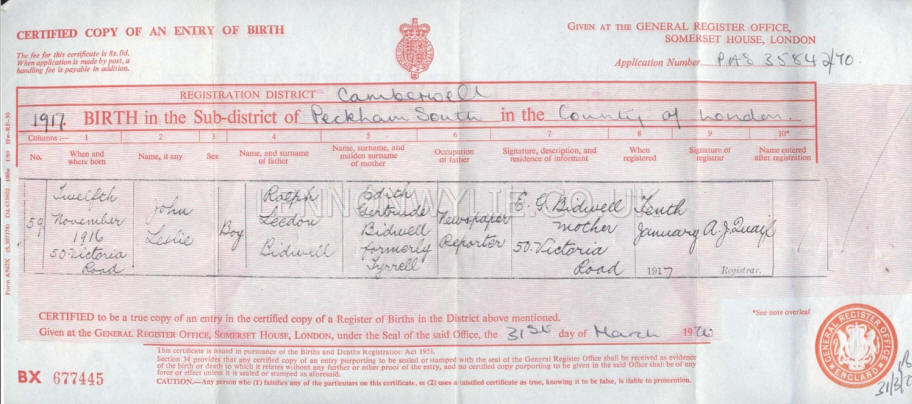 CERTIFIED COPY OF AN ENTRY OF BIRTH
GIVEN AT THE GENERAL REGISTER OFFICE,
SOMERSET HOUSE, LONDON
The fee for this certificate is 8s. 0d.
When application is made by post, a
handling fee is payable in addition.
Application Number PAS 35842/70
REGISTRATION DISTRICT Camberwell
1917. BIRTH in the Sub-district of Peckham South in the County of London
Columns:— 1 2 3 4 5 6 7 8 9 10*
No. When and where born Name, if any Sex Name, and surname of father Name, surname, and maiden surname of mother Occupation of father Signature, description, and residence of informant When registered Signature of registrar Name entered after registration
59 Twelfth November 1916 50 Victoria Road John Leslie Boy Ralph Leedon Bidwell Edith Gertrude Bidwell formerly Tyrrell Newspaper Reporter E. G Bidwell mother 50. Victoria Road Tenth January 1917 A J Quaif Registrar.
CERTIFIED to be a true copy of an entry in the certified copy of a Register of Births in the District above mentioned.
Given at the GENERAL REGISTER OFFICE, SOMERSET HOUSE, LONDON, under the Seal of the said Office, the 31st day of March 1970
*See note overleaf
This certificate is issued in pursuance of the Births and Deaths Registration Act 1953.
Section 34 provides that any certified copy of an entry purporting to be sealed or stamped with the seal of the General Register Office shall be received as evidence
of the birth or death to which it relates without any further or other proof of the entry, and no certified copy purporting to be given in the said Office shall be of any
force or effect unless it is sealed or stamped as aforesaid.
CAUTION.—Any person who (1) falsifies any of the particulars on this certificate, or (2) uses a falsified certificate as true, knowing it to be false, is liable to prosecution.
BX 677445
GENERAL REGISTER OFFICE
ENGLAND